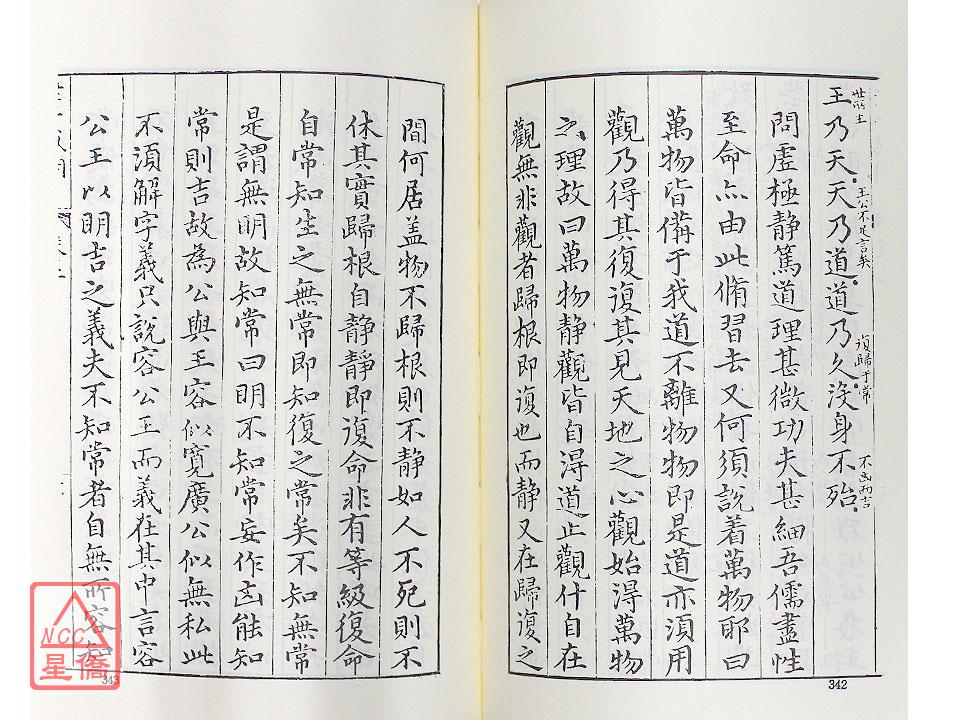 王乃天天乃道道乃久沒身不殆
世所主
王公不足言矣
復歸于常
不凶而吉
問虛極靜篤道理甚微功夫甚細吾儒盡性
至命亦由此脩習去又何須說着萬物耶曰
萬物皆備于我道不離物物即是道亦須用
觀乃得其復復其見天地之心觀始得萬物
之理故曰萬物靜觀皆自得道止觀什自在
觀無非觀者歸根即復也而靜又在歸復之
342
間何居盖物不歸根則不靜如人不死則不
休其實歸根自靜靜即復命非有等級復命
自常知生之無常即知復之常矣不知無常
是謂無明故知常曰明不知常妄作凶能知
常則吉故為公與王容似寬廣公似無私此
不須解字義只說容公王而義在其中言容
公王以明吉之義夫不知常者自無所容知
343
NCC
星僑